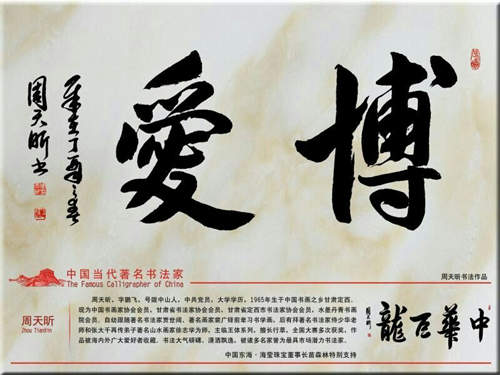 博愛
岁在丁酉之春
周天昕书
中国当代著名书法家
The Famous Calligrapher of China
周天昕书法作品
周天昕
Zhou TianXin
周天昕，字鹏飞，号陇中山人，中共党员，大学学历，1965年生于中国书画之乡甘肃定西。
现为中国书画家协会会员，甘肃省书法家协会会员，甘肃省定西市书法家协会会员，水墨丹青书画
院会员。自幼跟随著名书法家贾世阔、著名画家窦广辉初学习书学画。后有拜著名书法家侍少华老
师和张大千再传弟子著名山水画家徐志学为师。主临王体系列，擅长行草。全国大赛多次获奖，作
品被海内外广大爱好者收藏。书法大气磅礴、潇洒飘逸。被诸多名家誉为最具市场潜力书法家。
中国东海·海玺珠宝董事长葛森林特别支持
中華巨龍
周天昕书